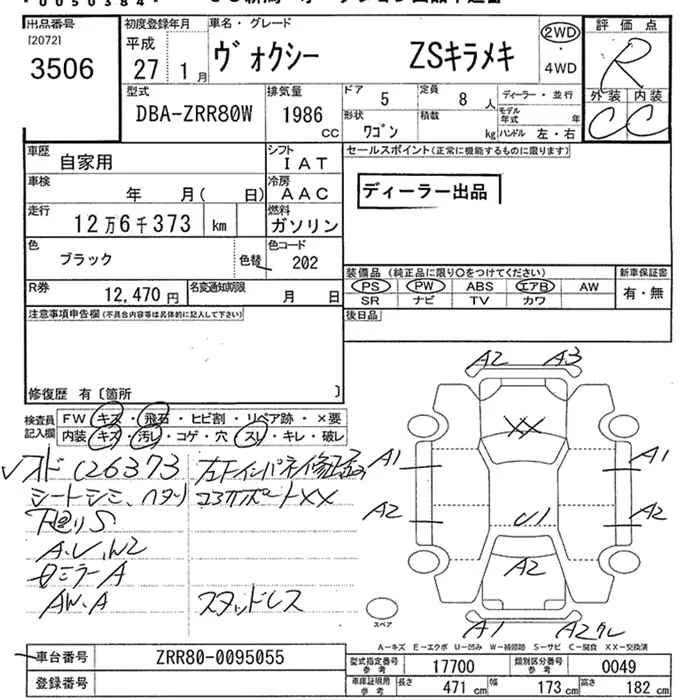 *0050384*
出品番号 初度登録年月 車名・グレード 評価点
[20721
3506 平成 27 1月 ヴォクシー ZSキラメキ 2WD ・ 4WD R
外装 内装
C C
型式 排気量 ドア 定員 ディーラー・並行
DBA-ZRR80W 1986 CC 5 8人 モデル年式 年
形状 ワゴン 積載 kg ハンドル 左・右
車歴 自家用 シフト IAT セールスポイント(正常に機能するものに限ります)
車検 年 月( 日) 冷房 AAC ディーラー出品
走行 12万6千373 km 燃料 ガソリン
色 ブラック 色替 色コード 202
装備品(純正品に限り○をつけてください) 新車保証書
R券 12,470円 名変通知期限 月 日 PS PW ABS エアB AW 有・無
SR ナビ TV カワ
注意事項申告欄(不具合内容等は具体的に記入して下さい) 後日品
修復歴 有〔箇所 〕
検査員記入欄 FW キズ・飛石・ヒビ割・リペア跡・×要
内装 キズ・汚レ・コゲ・穴・スレ・キレ・破レ
126373
シートシミ、ヘタリ コアサポートXX
下廻りS
A、U、W2
ミラーA
AW、A スタッドレス
A2 A3
XX
A1 A1
A2 A2
U1
A2
A1 A2
スペア
A-キズ E-エクボ U-凹み W-補修跡 S-サビ C-腐食 XX-交換済
車台番号 ZRR80-0095055 型式指定番号 参考 17700 類別区分番号 参考 0049
登録番号 車庫証明用 参考 長さ 471 cm 幅 173 cm 高さ 182 cm